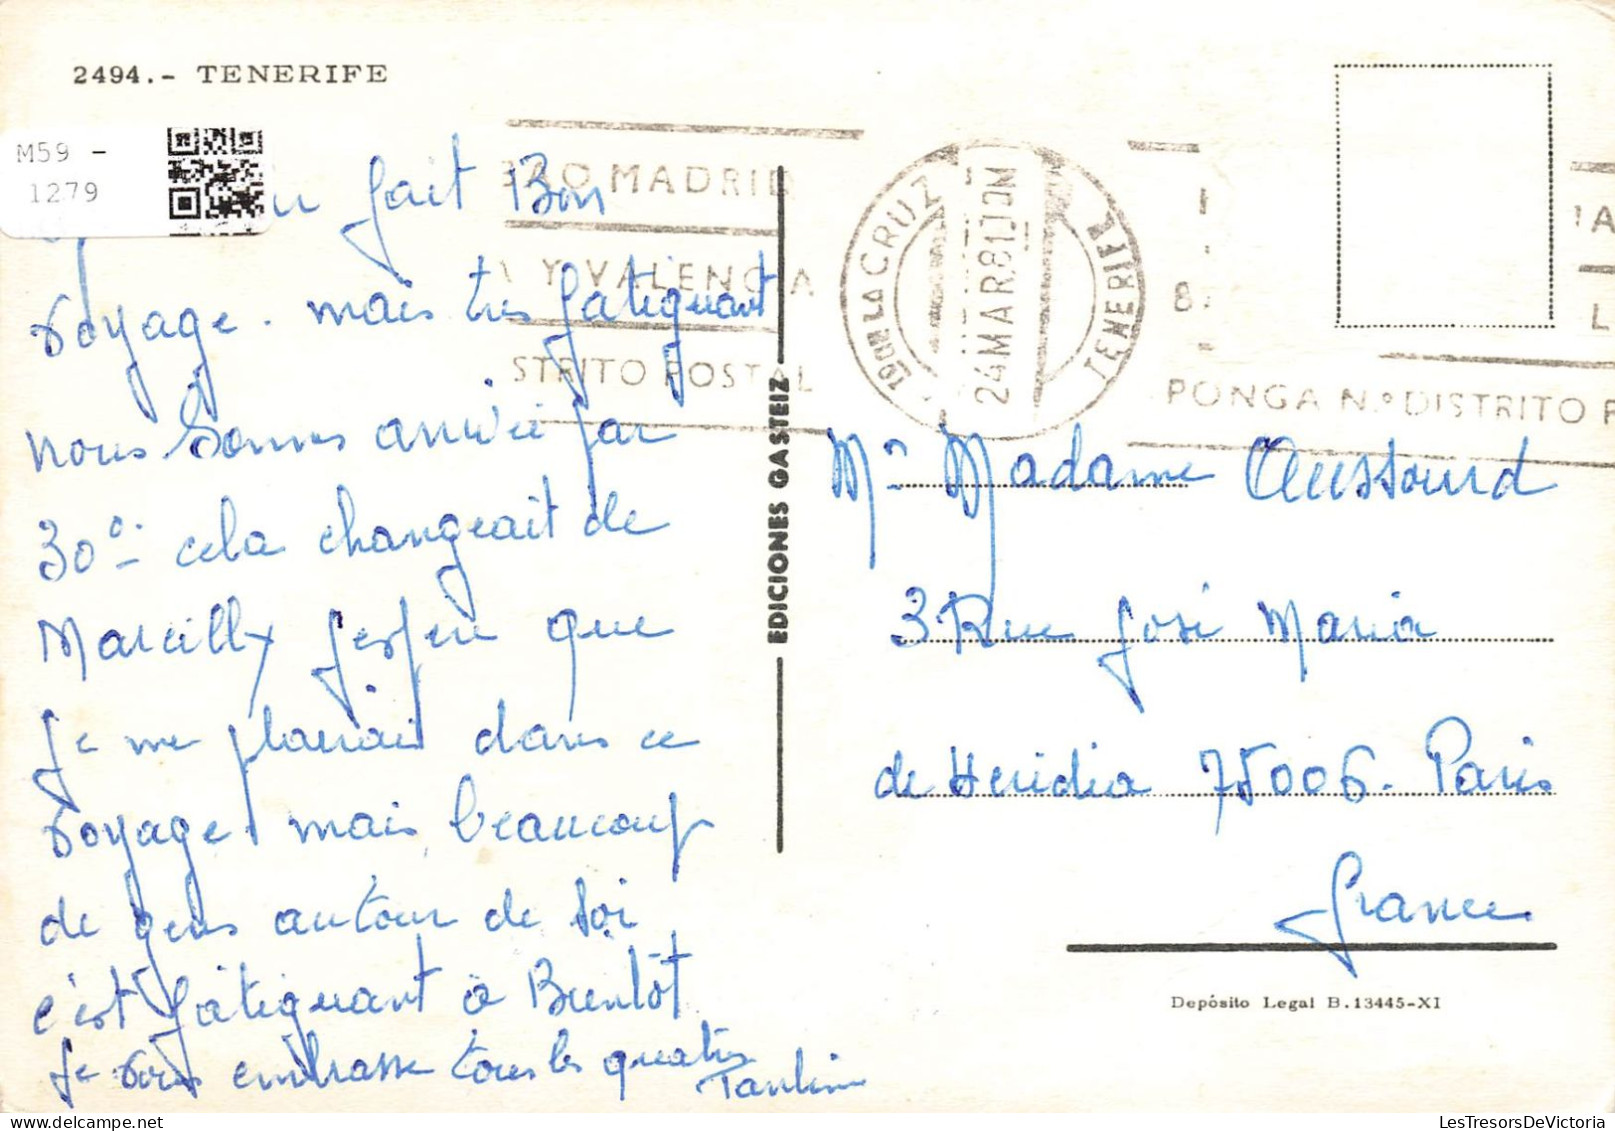 2494.- TENERIFE
M59 -
1279
fait Bon
voyage. mais très fatiguant
nous sommes arrivée par
30° cela changeait de
Marcilly j'espère que
je me plairais dans ce
voyage. mais beaucoup
de gens autour de soi
c'est fatiguant à Bientôt
Je vous embrasse tous les quatres
Pauline
MADRID
Y VALENCIA
STRITO POSTAL
LA CRUZ
TENERIFE
24 MAR.81
PONGA N.º DISTRITO P
EDICIONES GASTEIZ
Mr Madame Aussourd
3 Rue José Maria
de Heridia 75006. Paris
France
Depósito Legal B.13445-XI
LesTresorsDeVictoria.com